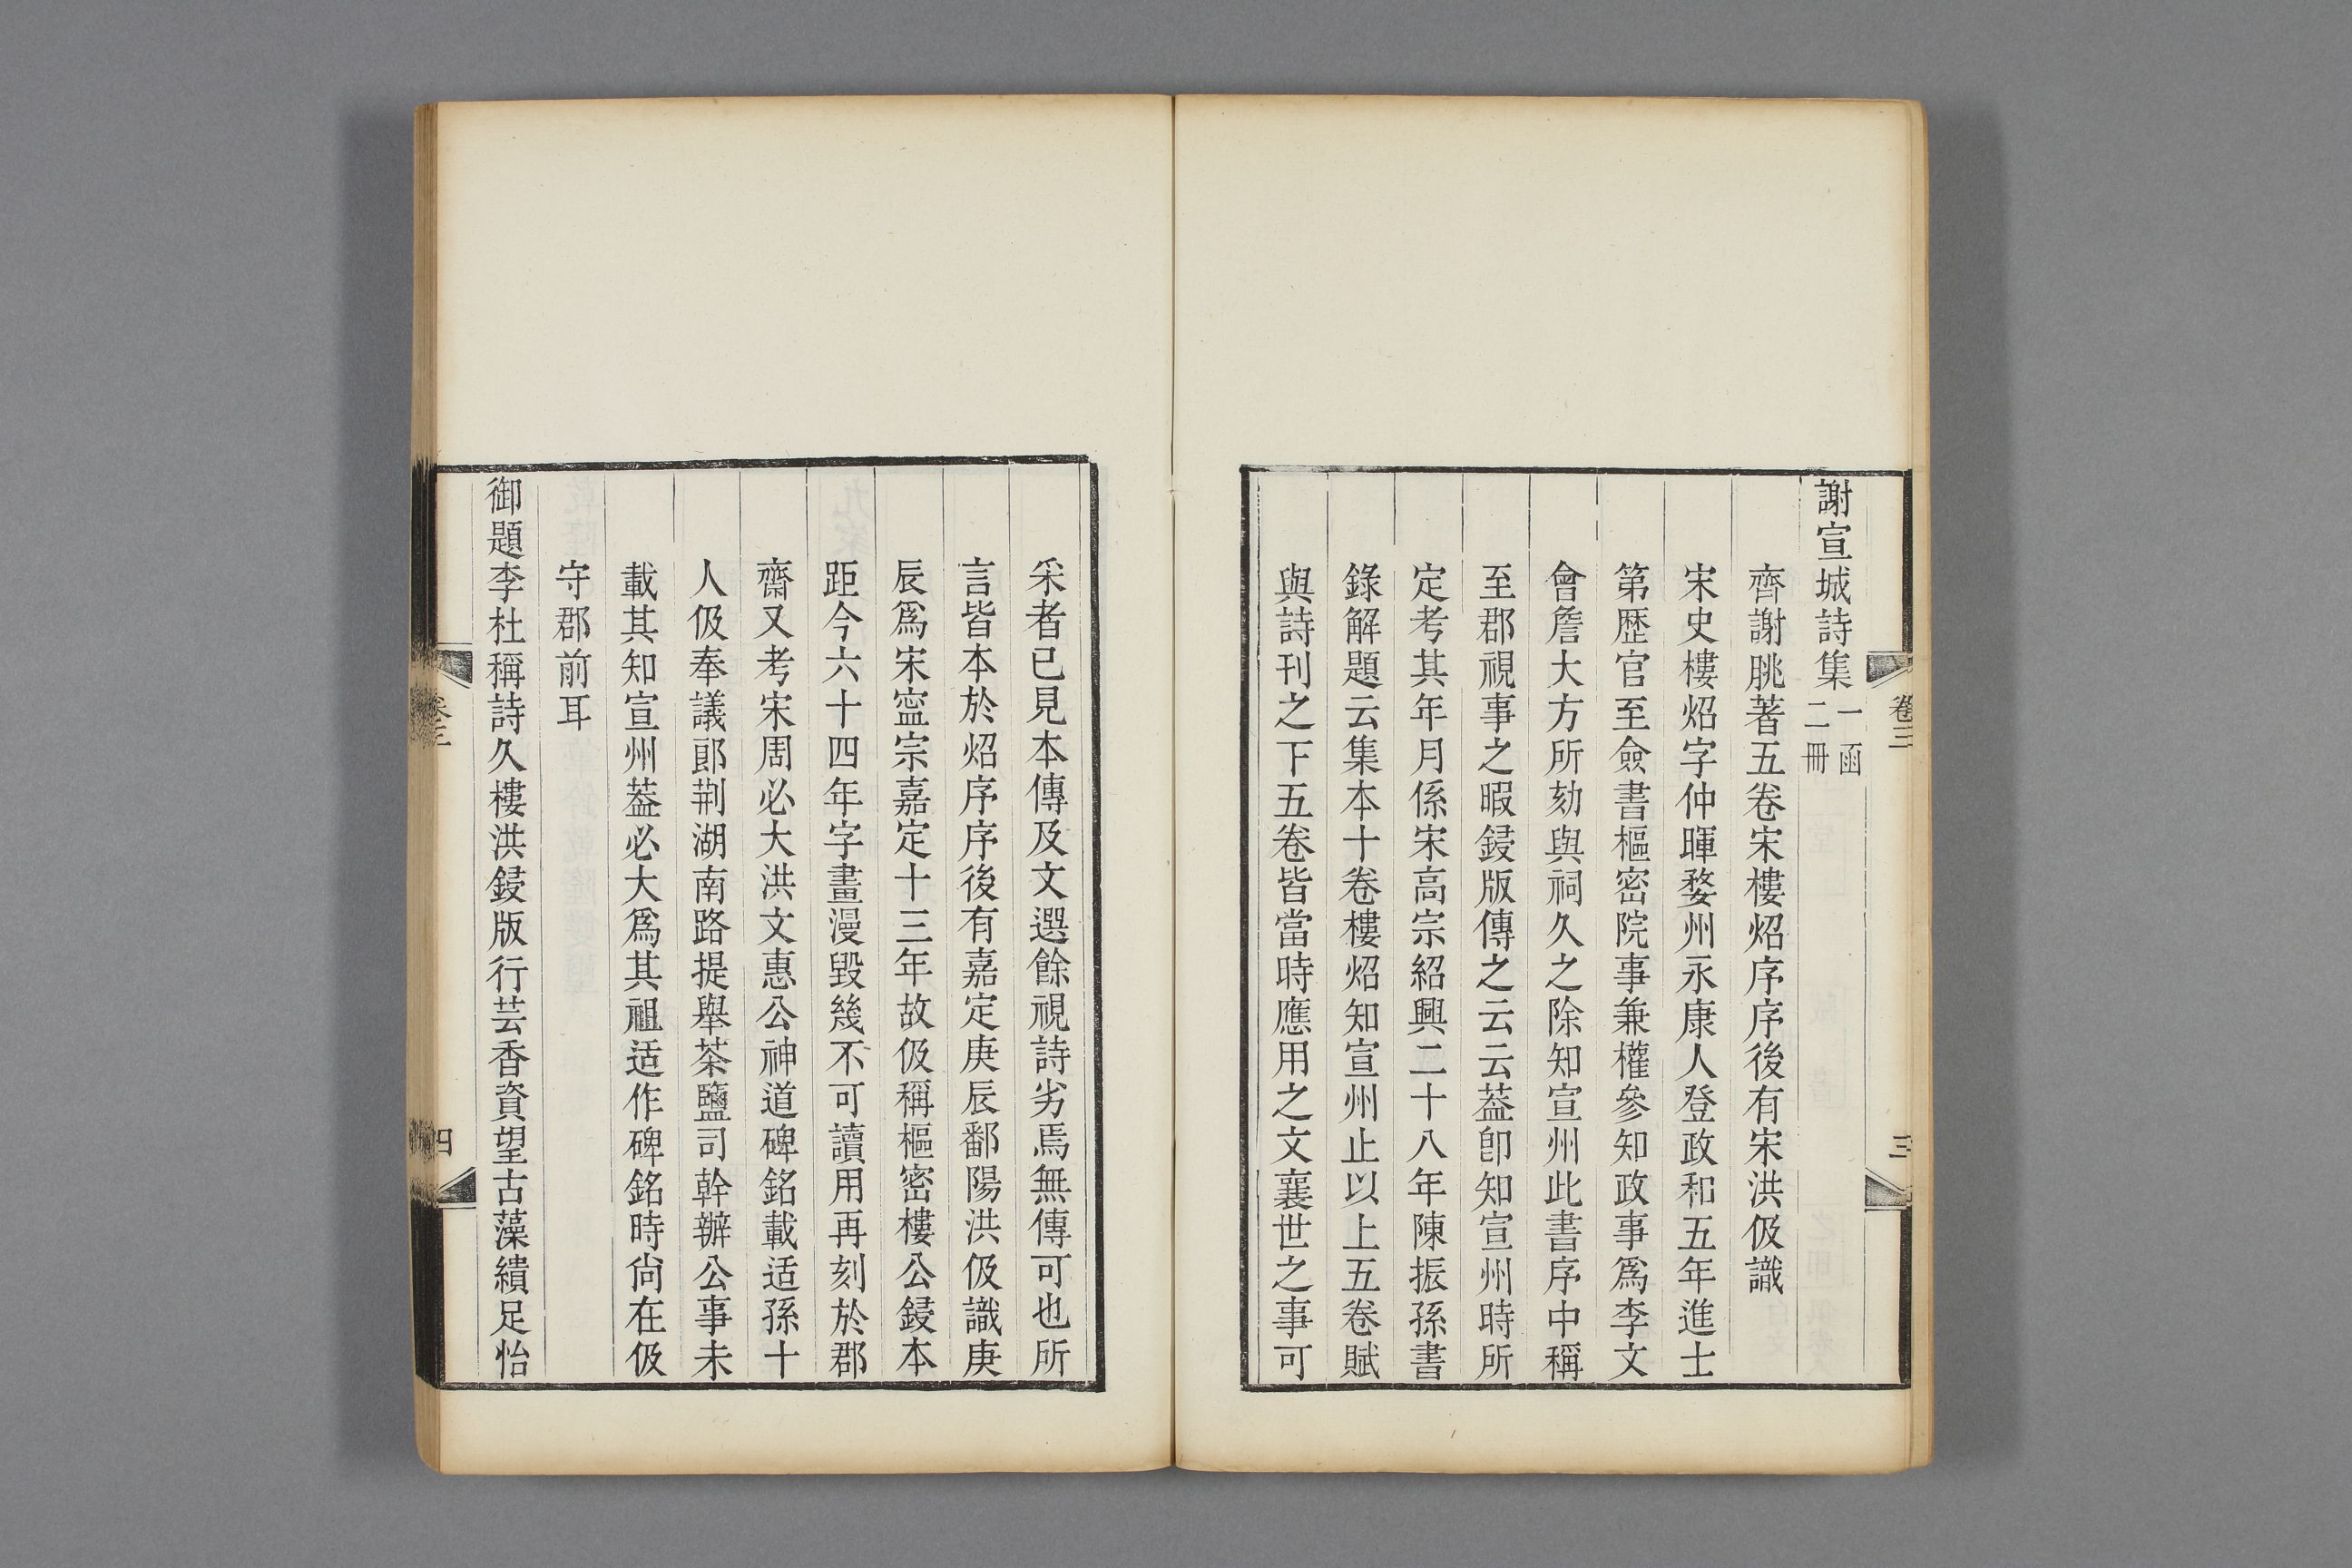 卷三
三
謝宣城詩集一函二冊
齊謝朓著五卷宋樓炤序序後有宋洪伋識
宋史樓炤字仲暉婺州永康人登政和五年進士
第歷官至僉書樞密院事兼權參知政事爲李文
會詹大方所劾與祠久之除知宣州此書序中稱
至郡視事之暇鋟版傳之云云葢卽知宣州時所
定考其年月係宋高宗紹興二十八年陳振孫書
錄解題云集本十卷樓炤知宣州止以上五卷賦
與詩刊之下五卷皆當時應用之文襄世之事可
采者已見本傳及文選餘視詩劣焉無傳可也所
言皆本於炤序序後有嘉定庚辰鄱陽洪伋識庚
辰爲宋寍宗嘉定十三年故伋稱樞密樓公鋟本
距今六十四年字畫漫毀幾不可讀用再刻於郡
齋又考宋周必大洪文惠公神道碑銘載适孫十
人伋奉議郎荆湖南路提舉茶鹽司幹辦公事未
載其知宣州葢必大爲其祖适作碑銘時尙在伋
守郡前耳
御題李杜稱詩久樓洪鋟版行芸香資望古藻繢足怡
卷三
四